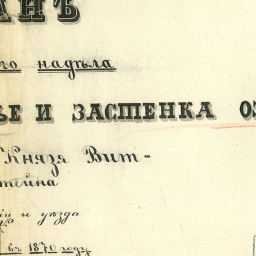 АНЪ
го надѣла
ЬЕ И ЗАСТЕНКА ОЗ
Князя Вит-
тейна
и уѣзда
въ 1870 году